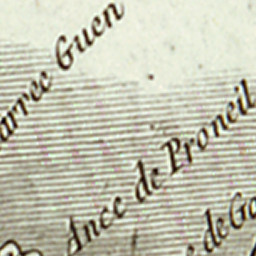 arrec Guen
Ance de Proneil
de Go